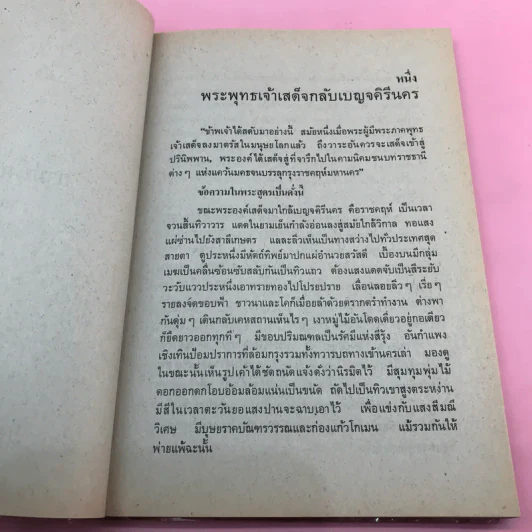 หนึ่ง
พระพุทธเจ้าเสด็จกลับเบญจคิรีนคร
"ข้าพเจ้าได้สดับมาอย่างนี้ สมัยหนึ่งเมื่อพระผู้มีพระภาคพุทธ
เจ้าเสด็จลงมาตรัสในมนุษยโลกแล้ว ถึงวาระอันควรจะเสด็จเข้าสู่
ปรินิพพาน, พระองค์ได้เสด็จสู่ที่จาริกไปในคามนิคมชนบทราชธานี
ต่าง ๆ แห่งแคว้นมคธจนบรรลุกรุงราชคฤห์มหานคร"
ข้อความในพระสูตรเป็นดั่งนี้
ขณะพระองค์เสด็จมาใกล้เบญจคิรีนคร คือราชคฤห์ เป็นเวลา
จวนสิ้นทิวาวาร แดดในยามเย็นกำลังอ่อนลงสู่สมัยใกล้วิกาล ทอแสง
แผ่ซ่านไปยังสาลีเกษตร และติวเห็นเป็นทางสว่างไปทั่วประเทศสุด
สายตา ดูประหนึ่งมีหัตถ์ทิพย์มาปกแผ่อำนวยสวัสดี เบื้องบนมีกลุ่ม
เมฆเป็นคลื่นซ้อนซับสลับกันเป็นทิวแถว ต้องแสงแดดจับเป็นสีระยับ
วะวับแววประหนึ่งเอาทรายทองไปโปรยปราย เลื่อนลอยลิ่ว ๆ เรี่ย ๆ
รายลงจดขอบฟ้า ชาวนาและโคก็เมื่อยล้าด้วยตรากตรำทำงาน ต่างพา
กันดุ่ม ๆ เดินกลับเคหสถานเห็นไร ๆ เงาหมู่ไม้อันโดดเดี่ยวอยู่กอเดียว
ก็ยืดยาวออกทุกที ๆ มีขอบปริมณฑลเป็นรัศมีแห่งสีรุ้ง อันกำแพง
เชิงเทินป้อมปราการที่ล้อมกรุงรวมทั้งทวารบถทางเข้านครเล่า มองดู
ในขณะนั้นเห็นรูปเค้าได้ชัดถนัดแจ้งดั่งว่านิรมิตไว้ มีสุมทุมพุ่มไม้
ดอกออกดกโอบอ้อมล้อมแน่นเป็นขนัด ถัดไปเป็นทิวเขาสูงตระหง่าน
มีสีในเวลาตะวันยอแสงปานจะฉาบเอาไว้ เพื่อแข่งกับแสงสีมณี
วิเศษ มีบุษยราคบัณฑรวรรณและก่องแก้วโกเมน แม้รวมกันให้
พ่ายแพ้ฉะนั้น